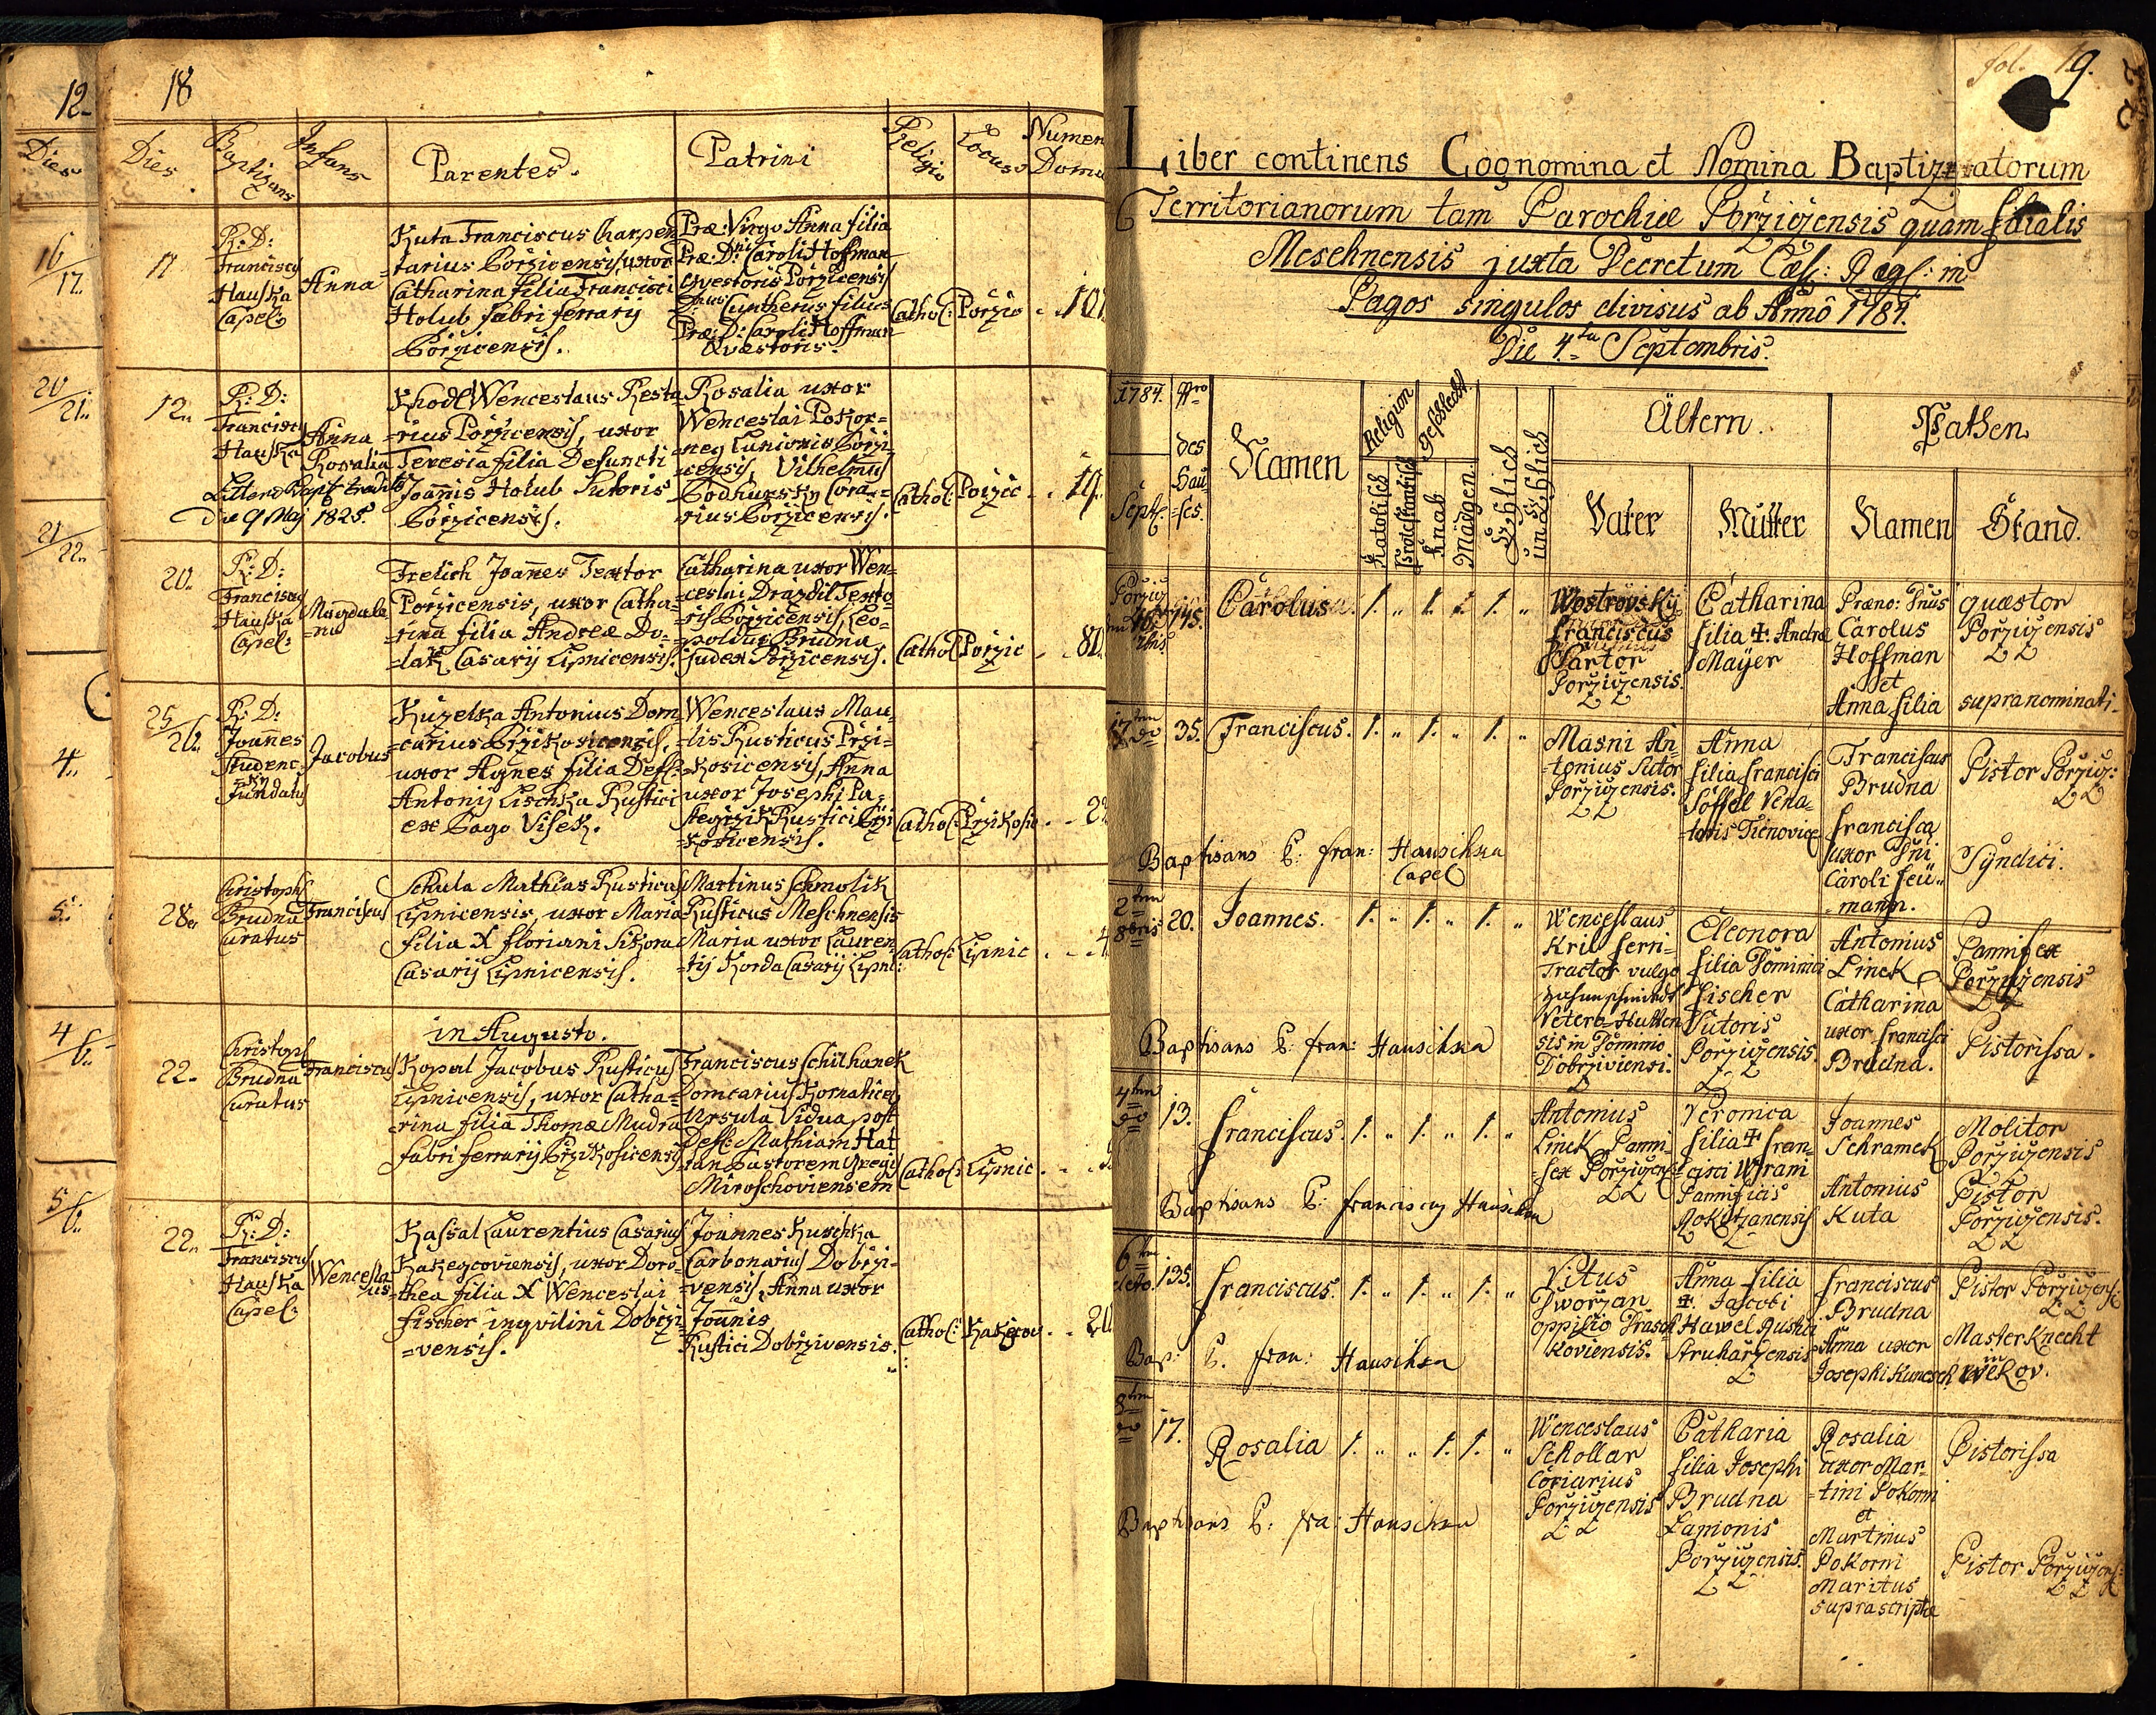 12.
Dies
16/17.
20/21.
21/22.
4.
5.
4/6.
5/6.
18
Dies Baptizans Infans Parentes. Patrini Religio Locus Numer Domus
17
R: D:
Franciscus
Hauska
Capel:
Anna
Kuta Franciscus Charpen
tarius Porzicensis, uxor
Catharina filia Francisci
Holub fabri ferrarij
Porzicensis.
Præ: Virgo Anna filia
Præ: D: Caroli Hoffman
Qvæstoris Porzicensis
Guntherus filius
Præ: D: Caroli Hoffman
Qvæstoris.
Cathol: Porzic
12.
R: D:
Franciscus
Hauska
Anna
Rosalia
Litteræ Bapt: traditæ
Die 9 Maj 1825.
Khodl Wenceslaus Resta
=rius Porzicensis, uxor
Teresia filia Defuncti
Joannis Holub Sutoris
Porzicensis.
Rosalia uxor
Wenceslai Pokor=
=neg Lanionis Porzi
=censis, Vilhelmus
Podhursky Cora=
=rius Porzicensis.
Cathol: Porzic . . 19.
20.
R: D:
Franciscus
Hauska
Capel:
Magdale
=na
Frelich Joannes Textor
Porzicensis, uxor Catha=
=rina filia Andreæ Do=
=lak Casarij Lipnicensis.
Catharina uxor Wen=
=ceslai Drazdil Texto
=ris Porzicensis, Leo=
=poldus Brudna
Judex Porzicensis.
Cathol Porzic . . 81.
25/26.
R: D:
Joannes
Studenc
=ky
Fundatus
Jacobus
Kuzelka Antonius Dom
=carius Przikosicensis,
uxor Agnes filia Def:
Antonij Lischka Rustici
ex Pago Visek.
Wenceslaus Mau=
=lis Rusticus Przi=
=kosicensis, Anna
uxor Josephi Pa=
Rustici Przi
=kosicensis.
Cathol: Przikosic . . 2
28.
Christoph
Brudna
Curatus
Franciscus
Schula Mathias Rusticus
Lipnicensis, uxor Maria
filia X Floriani Sikora
Casarij Lipnicensis.
Martinus Schmolik
Rusticus Meschnensis
Maria uxor Lauren
=tij Korda Casarij Lipni:
Cathol: Lipnic . . 4
in Augusto.
22.
Christoph
Brudna
Curatus
Franciscus
Kopal Jacobus Rusticus
Lipnicensis, uxor Catha=
rina filia Thomæ Mudra
fabri ferrarij Przikosicensis
Franciscus Schilhanek
Domcarius Kornaticen
Ursula Vidua post
Def: Mathiam Hat
=lan Pastorem Gregis
Miroschoviensem
Cathol: Lipnic .
22.
R: D:
Franciscus
Hauska
Capel:
Wencesla
=us
Kassal Laurentius Casarius
Kakeycoviensis, uxor Doro=
=thea filia X Wenceslai
Fischer inqvilini Dobrzi
=vensis.
Joannes Kuschka
Carbonarius Dobrzi=
=vensis, Anna uxor
Joannis
Rustici Dobrzivensis.
Cathol: Kakejcov . .
fol. 19.
Liber continens Cognomina et Nomina Baptizatorum
Territorianorum tam Parochiæ Porzizensis quam filialis
Meschnensis juxta Decretum Cæs: Reg: in
Pagos singulos divisus ab Anno 1784.
Die 4ta Septembris.
1784. Nro
des
Hau=
=ses.
Sept:
Namen
Religion Geschlecht
Katolisch Protestantisch Knab Mädgen. Ehelich unehelich
Ältern. Pathen
Vater Mutter Namen Stand.
Porziz
145. Carolus 1. „ 1. 1. „
Wostrovsky
Franciscus
Sartor
Porzizensis.
Catharina
filia ✝. Andreæ
Mayer
Præno: Dnus
Carolus
Hoffman
et
Anna filia
quæstor
Porzizensis
supranominati.
17ten do 35. Franciscus. 1. „ 1. „ 1. „
Masni An
tonius Sutor
Porzizensis.
Anna
filia Francisci
Söffel Vena=
=toris Tienovicæ
Franciscus
Brudna
Francisca
uxor Dni
Caroli Neu=
=mann.
Pistor Porziz:
Syndici.
Baptisans P: Fran: Hauschka
Capel
2ten 8bris 20. Joannes. 1. „ 1. „ 1. „
Wenceslaus
Kril ferri=
Tractor vulgo
Vetero-Hutten
sis in Dominio
Dobrziviensi.
Eleonora
filia Dominici
Fischer
Sutoris
Porzizensis.
Antonius
Linck
Catharina
uxor Francisci
Brudna.
Pannifex
Porzizensis
Pistorissa.
Baptisans P: Fran: Hauschka
4ten do 13. Franciscus. 1. „ 1. „ 1. „
Antonius
Linck Panni=
=fex Porzizens:
Veronica
filia ✝ Fran=
=cisci Wrani
Pannificis
Rokitzanensis
Joannes
Schramek
Antonius
Kuta
Molitor
Porzizensis
Pistor
Porzizensis.
Baptisans P: Franciscus Hauschka
6ten detto. 135. Franciscus. 1. „ 1. „ 1. „
Vitus
Dworzan
oppilio
koviensis.
Anna filia
✝. Jacobi
Hawel Rustici
Struharzensis
Franciscus
Brudna
Anna uxor
Josephi Kunesch
Pistor Porzizens:
Masterknecht
in
Wekov.
Bap: P. Fran: Hauschka
8ten do 17. Rosalia 1. „ „ 1. 1. „
Wenceslaus
Schollar
Coriarius
Porzizensis
Catharia
filia Josephi
Brudna
Lanionis
Porzizensis.
Rosalia
uxor Mar=
=tini Pokorni
et
Martinus
Pokorni
Maritus
suprascriptæ
Pistorissa
Pistor Porzizens:
Baptisans P: Fra: Hauschka